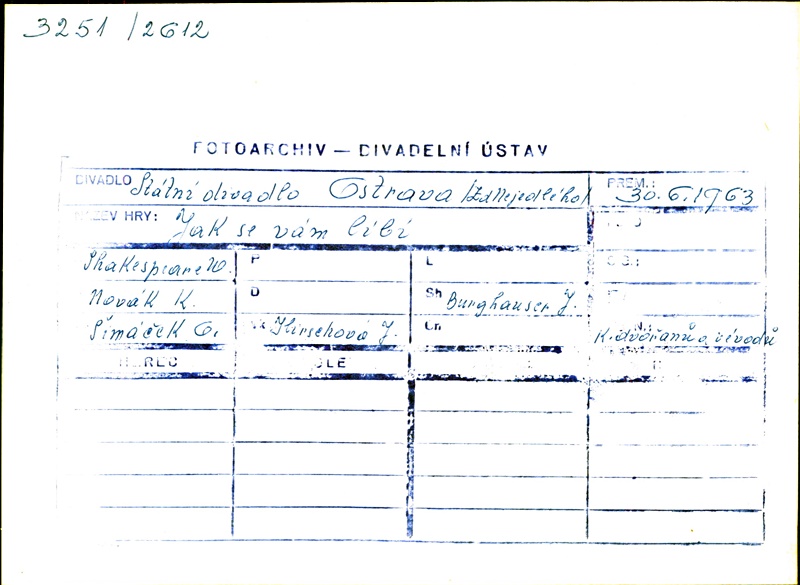 3251/2612
FOTOARCHIV — DIVADELNÍ ÚSTAV
DIVADLO Státní divadlo Ostrava /Zd Nejedlého/ PREM.: 30.6.1963
NÁZEV HRY: Jak se vám líbí
Shakespeare W. P L
Novák K. D Sh Burghauser J.
Šimáček O. Hirschová J. Ch K. dvořanů a vévodů
HEREC